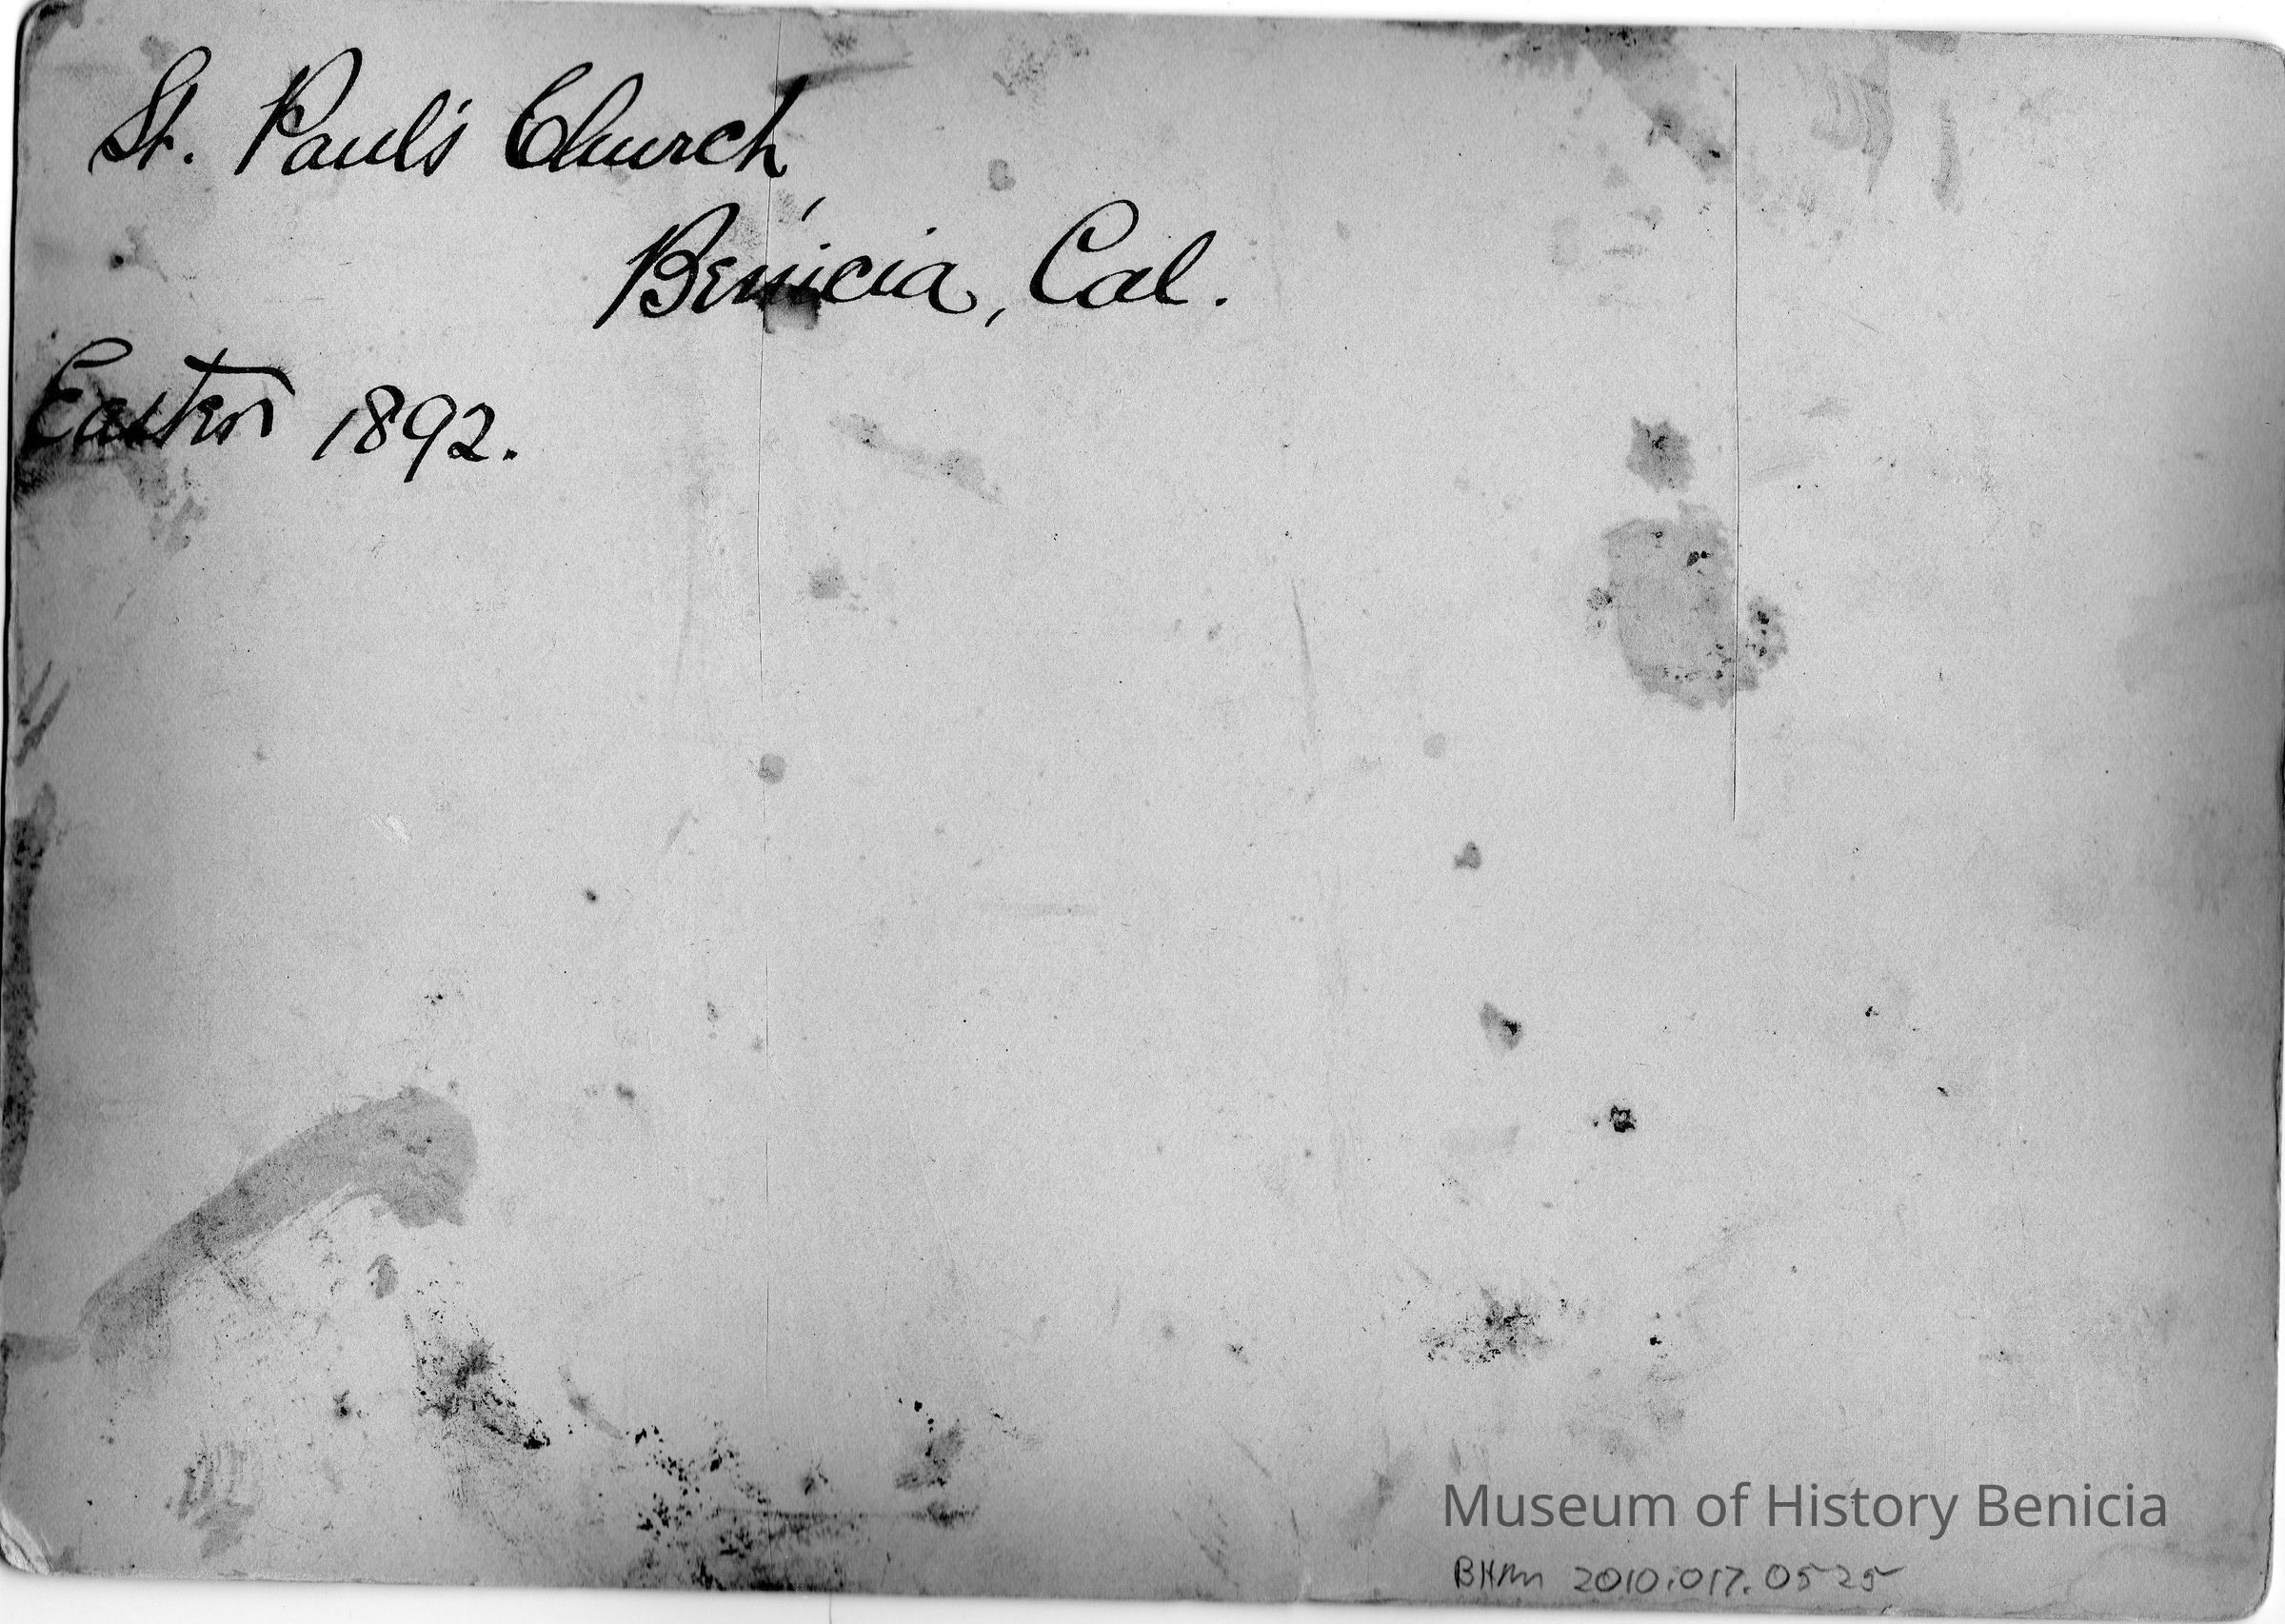 St. Paul's Church,
Benicia, Cal.
Easter 1892.
Museum of History Benicia
BHM 2010.017.0525